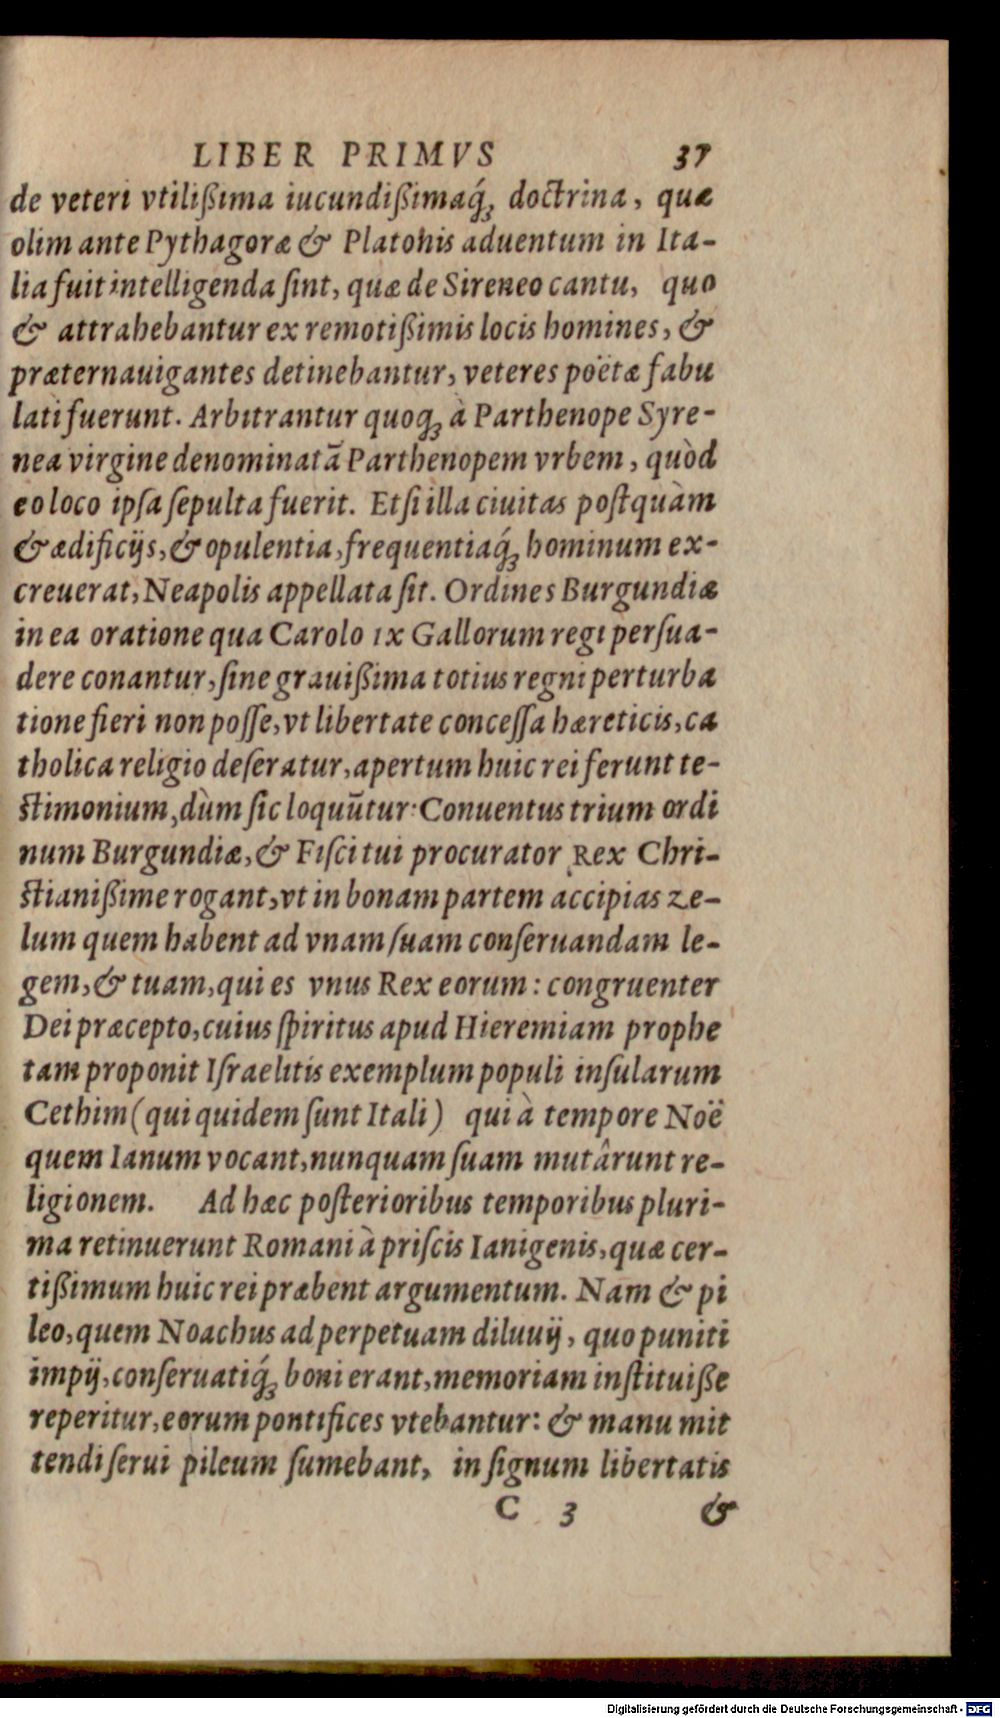 LIBER PRIMVS 37
de veteri vtilißima iucundißimaq́ꝫ doctrina, quæ
olim ante Pythagoræ & Platonis aduentum in Ita-
lia fuit intelligenda ſint, quæ de Sireneo cantu, quo
& attrahebantur ex remotißimis locis homines, &
præternauigantes detinebantur, veteres poëtæ fabu
lati fuerunt. Arbitrantur quoqꝫ à Parthenope Syre-
nea virgine denominatā Parthenopem vrbem, quòd
eo loco ipſa ſepulta fuerit. Etſi illa ciuitas poſtquàm
& ædificijs, & opulentia, frequentiaq́ꝫ hominum ex-
creuerat, Neapolis appellata ſit. Ordines Burgundiæ
in ea oratione qua Carolo IX Gallorum regi perſua-
dere conantur, ſine grauißima totius regni perturba
tione fieri non poſſe, vt libertate conceſſa hæreticis, ca
tholica religio deſeratur, apertum huic rei ferunt te-
ſtimonium, dùm ſic loquūtur: Conuentus trium ordi
num Burgundiæ, & Fiſci tui procurator Rex Chri-
ſtianißime rogant, vt in bonam partem accipias ze-
lum quem habent ad vnam ſuam conſeruandam le-
gem, & tuam, qui es vnus Rex eorum: congruenter
Dei præcepto, cuius ſpiritus apud Hieremiam prophe
tam proponit Iſraelitis exemplum populi inſularum
Cethim (qui quidem ſunt Itali) qui à tempore Noë
quem Ianum vocant, nunquam ſuam mutârunt re-
ligionem. Ad hæc poſterioribus temporibus pluri-
ma retinuerunt Romani à priſcis Ianigenis, quæ cer-
tißimum huic rei præbent argumentum. Nam & pi
leo, quem Noachus ad perpetuam diluuij, quo puniti
impij, conſeruatiq́ꝫ boni erant, memoriam inſtituiße
reperitur, eorum pontifices vtebantur: & manu mit
tendi ſerui pileum ſumebant, in ſignum libertatis
C 3 &
Digitalisierung gefördert durch die Deutsche Forschungsgemeinschaft - DFG